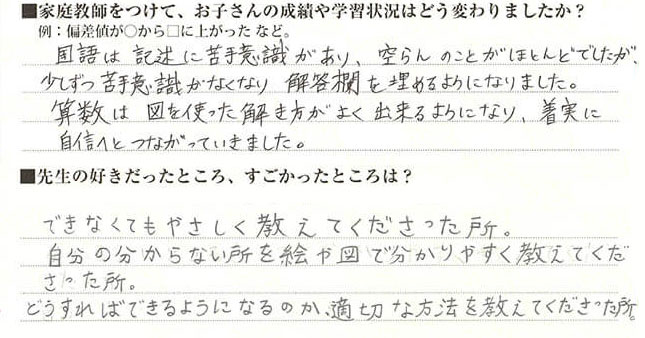 ■家庭教師をつけて、お子さんの成績や学習状況はどう変わりましたか？
例：偏差値が○から□に上がった など。
国語は 記述に苦手意識があり、空らんのことがほとんどでしたが、
少しずつ苦手意識がなくなり 解答欄を埋めるようになりました。
算数は 図を使った解き方がよく出来るようになり、着実に
自信へとつながっていきました。
■先生の好きだったところ、すごかったところは？
できなくてもやさしく教えてくださった所。
自分の分からない所を絵や図で分かりやすく教えてくだ
さった所。
どうすればできるようになるのか、適切な方法を教えてくださった所。